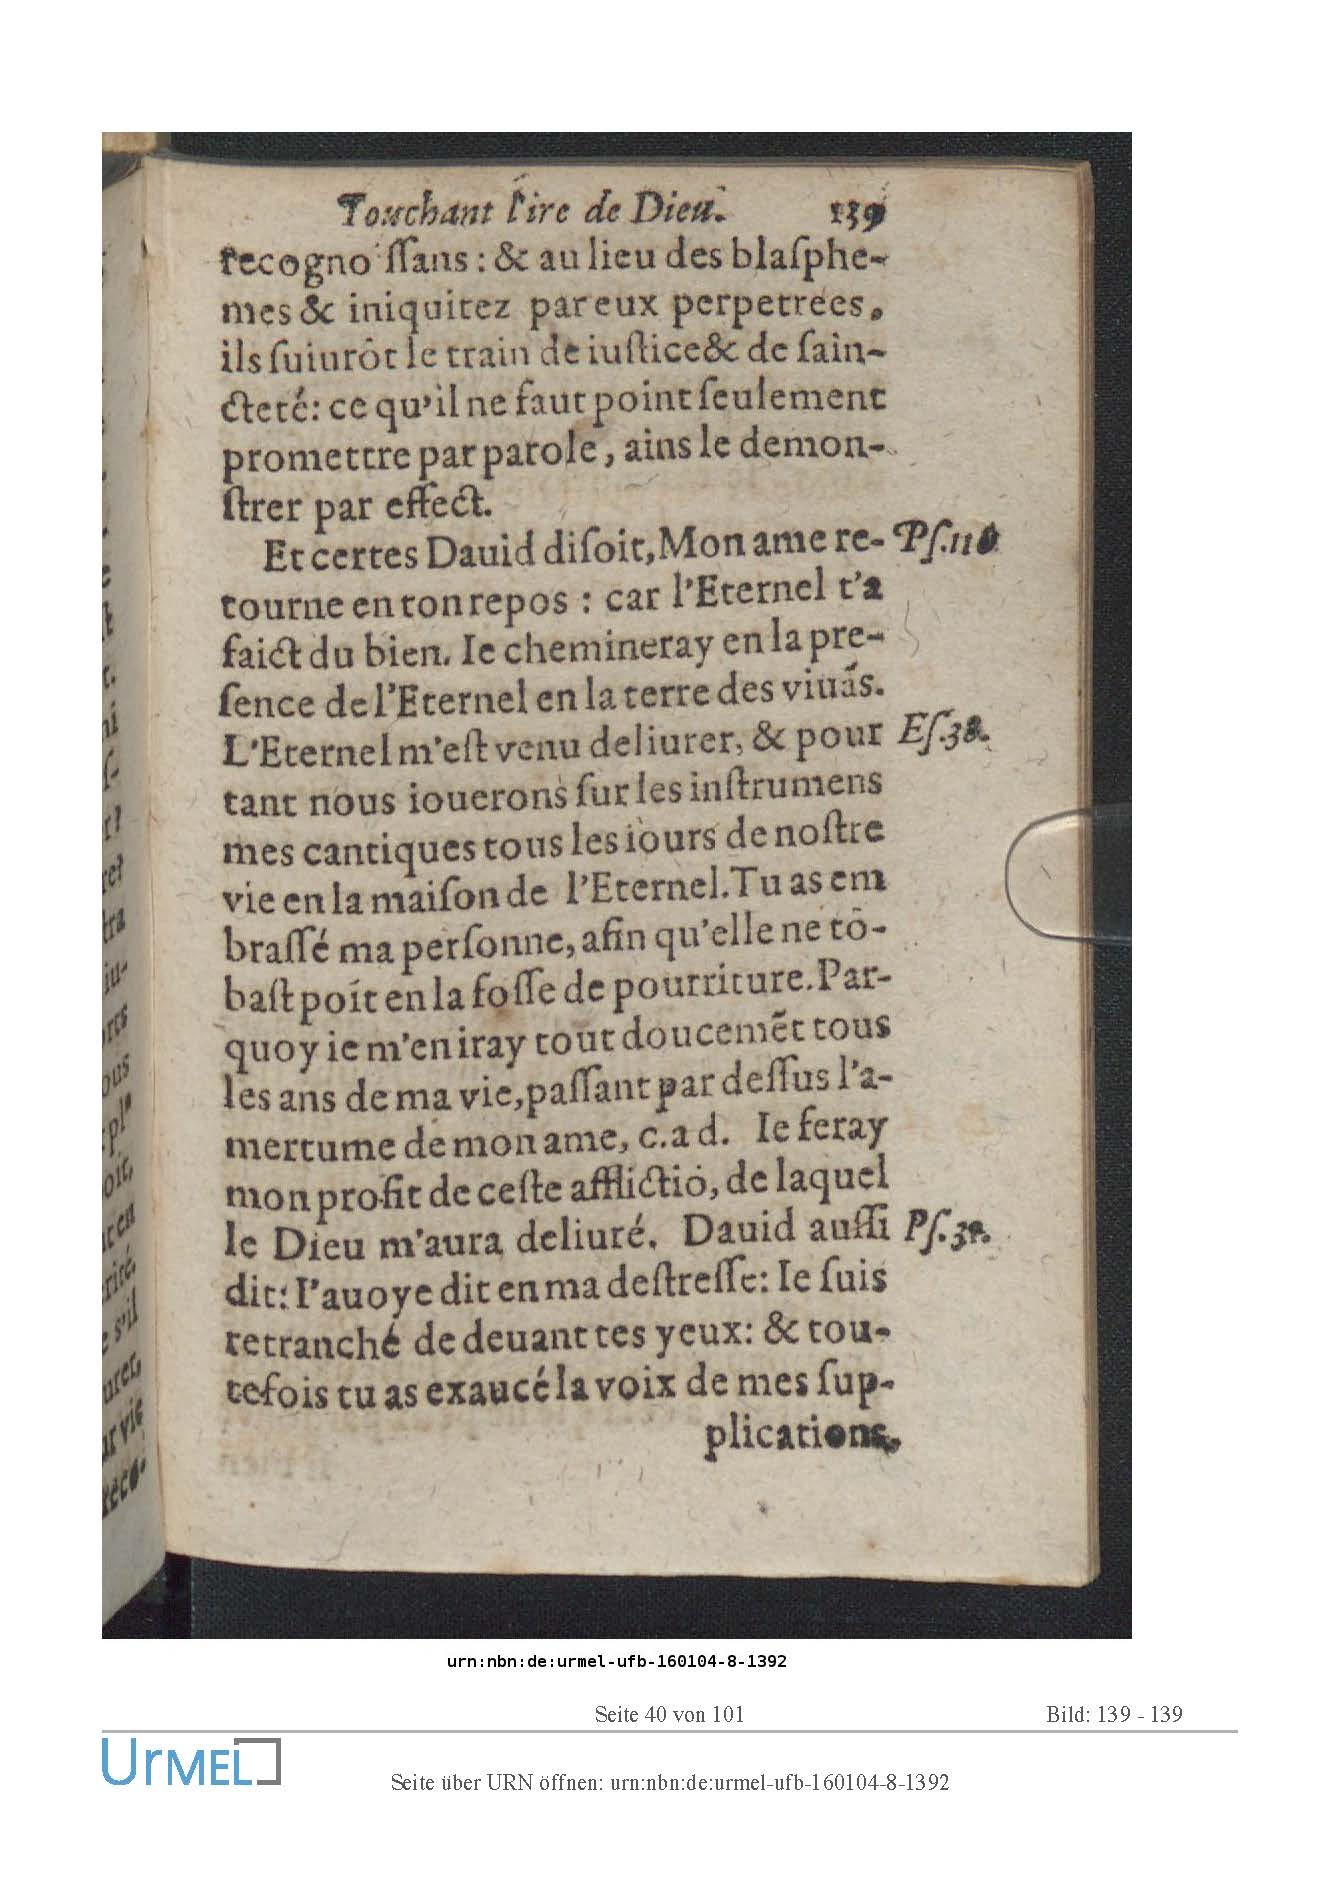 Touchant l'ire de Dieu. 139
recogno ſſans : & au lieu des blaſphe-
mes & iniquitez par eux perpetrées,
ils ſuiurōt le train de iuſtice & de ſain-
cteté: ce qu'il ne faut point ſeulement
promettre par parole, ains le demon-
ſtrer par effect.
Et certes Dauid diſoit, Mon ame re- Pſ.116
tourne en ton repos : car l'Eternel t'a
faict du bien. Ie chemineray en la pre-
ſence de l'Eternel en la terre des viuās.
L'Eternel m'eſt venu deliurer, & pour Eſ.38.
tant nous iouerons ſur les inſtrumens
mes cantiques tous les iours de noſtre
vie en la maiſon de l'Eternel. Tu as em
braſſé ma perſonne, afin qu'elle ne tō-
baſt poīt en la foſſe de pourriture. Par-
quoy ie m'en iray tout doucemēt tous
les ans de ma vie, paſſant par deſſus l'a-
mertume de mon ame, c.a d. Ie feray
mon profit de ceſte afflictiō, de laquel
le Dieu m'aura deliuré. Dauid auſſi Pſ.31.
dit: I'auoye dit en ma deſtreſſe: Ie ſuis
retranché de deuant tes yeux: & tou-
tefois tu as exaucé la voix de mes ſup-
plications,
urn:nbn:de:urmel-ufb-160104-8-1392
Seite 40 von 101 Bild: 139 - 139
UrMEL
Seite über URN öffnen: urn:nbn:de:urmel-ufb-160104-8-1392